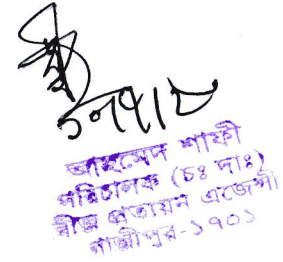 আহমেদ শাফী
পরিচালক (চঃ দাঃ)
বীজ প্রত্যয়ন এজেন্সী
গাজীপুর-১৭০১